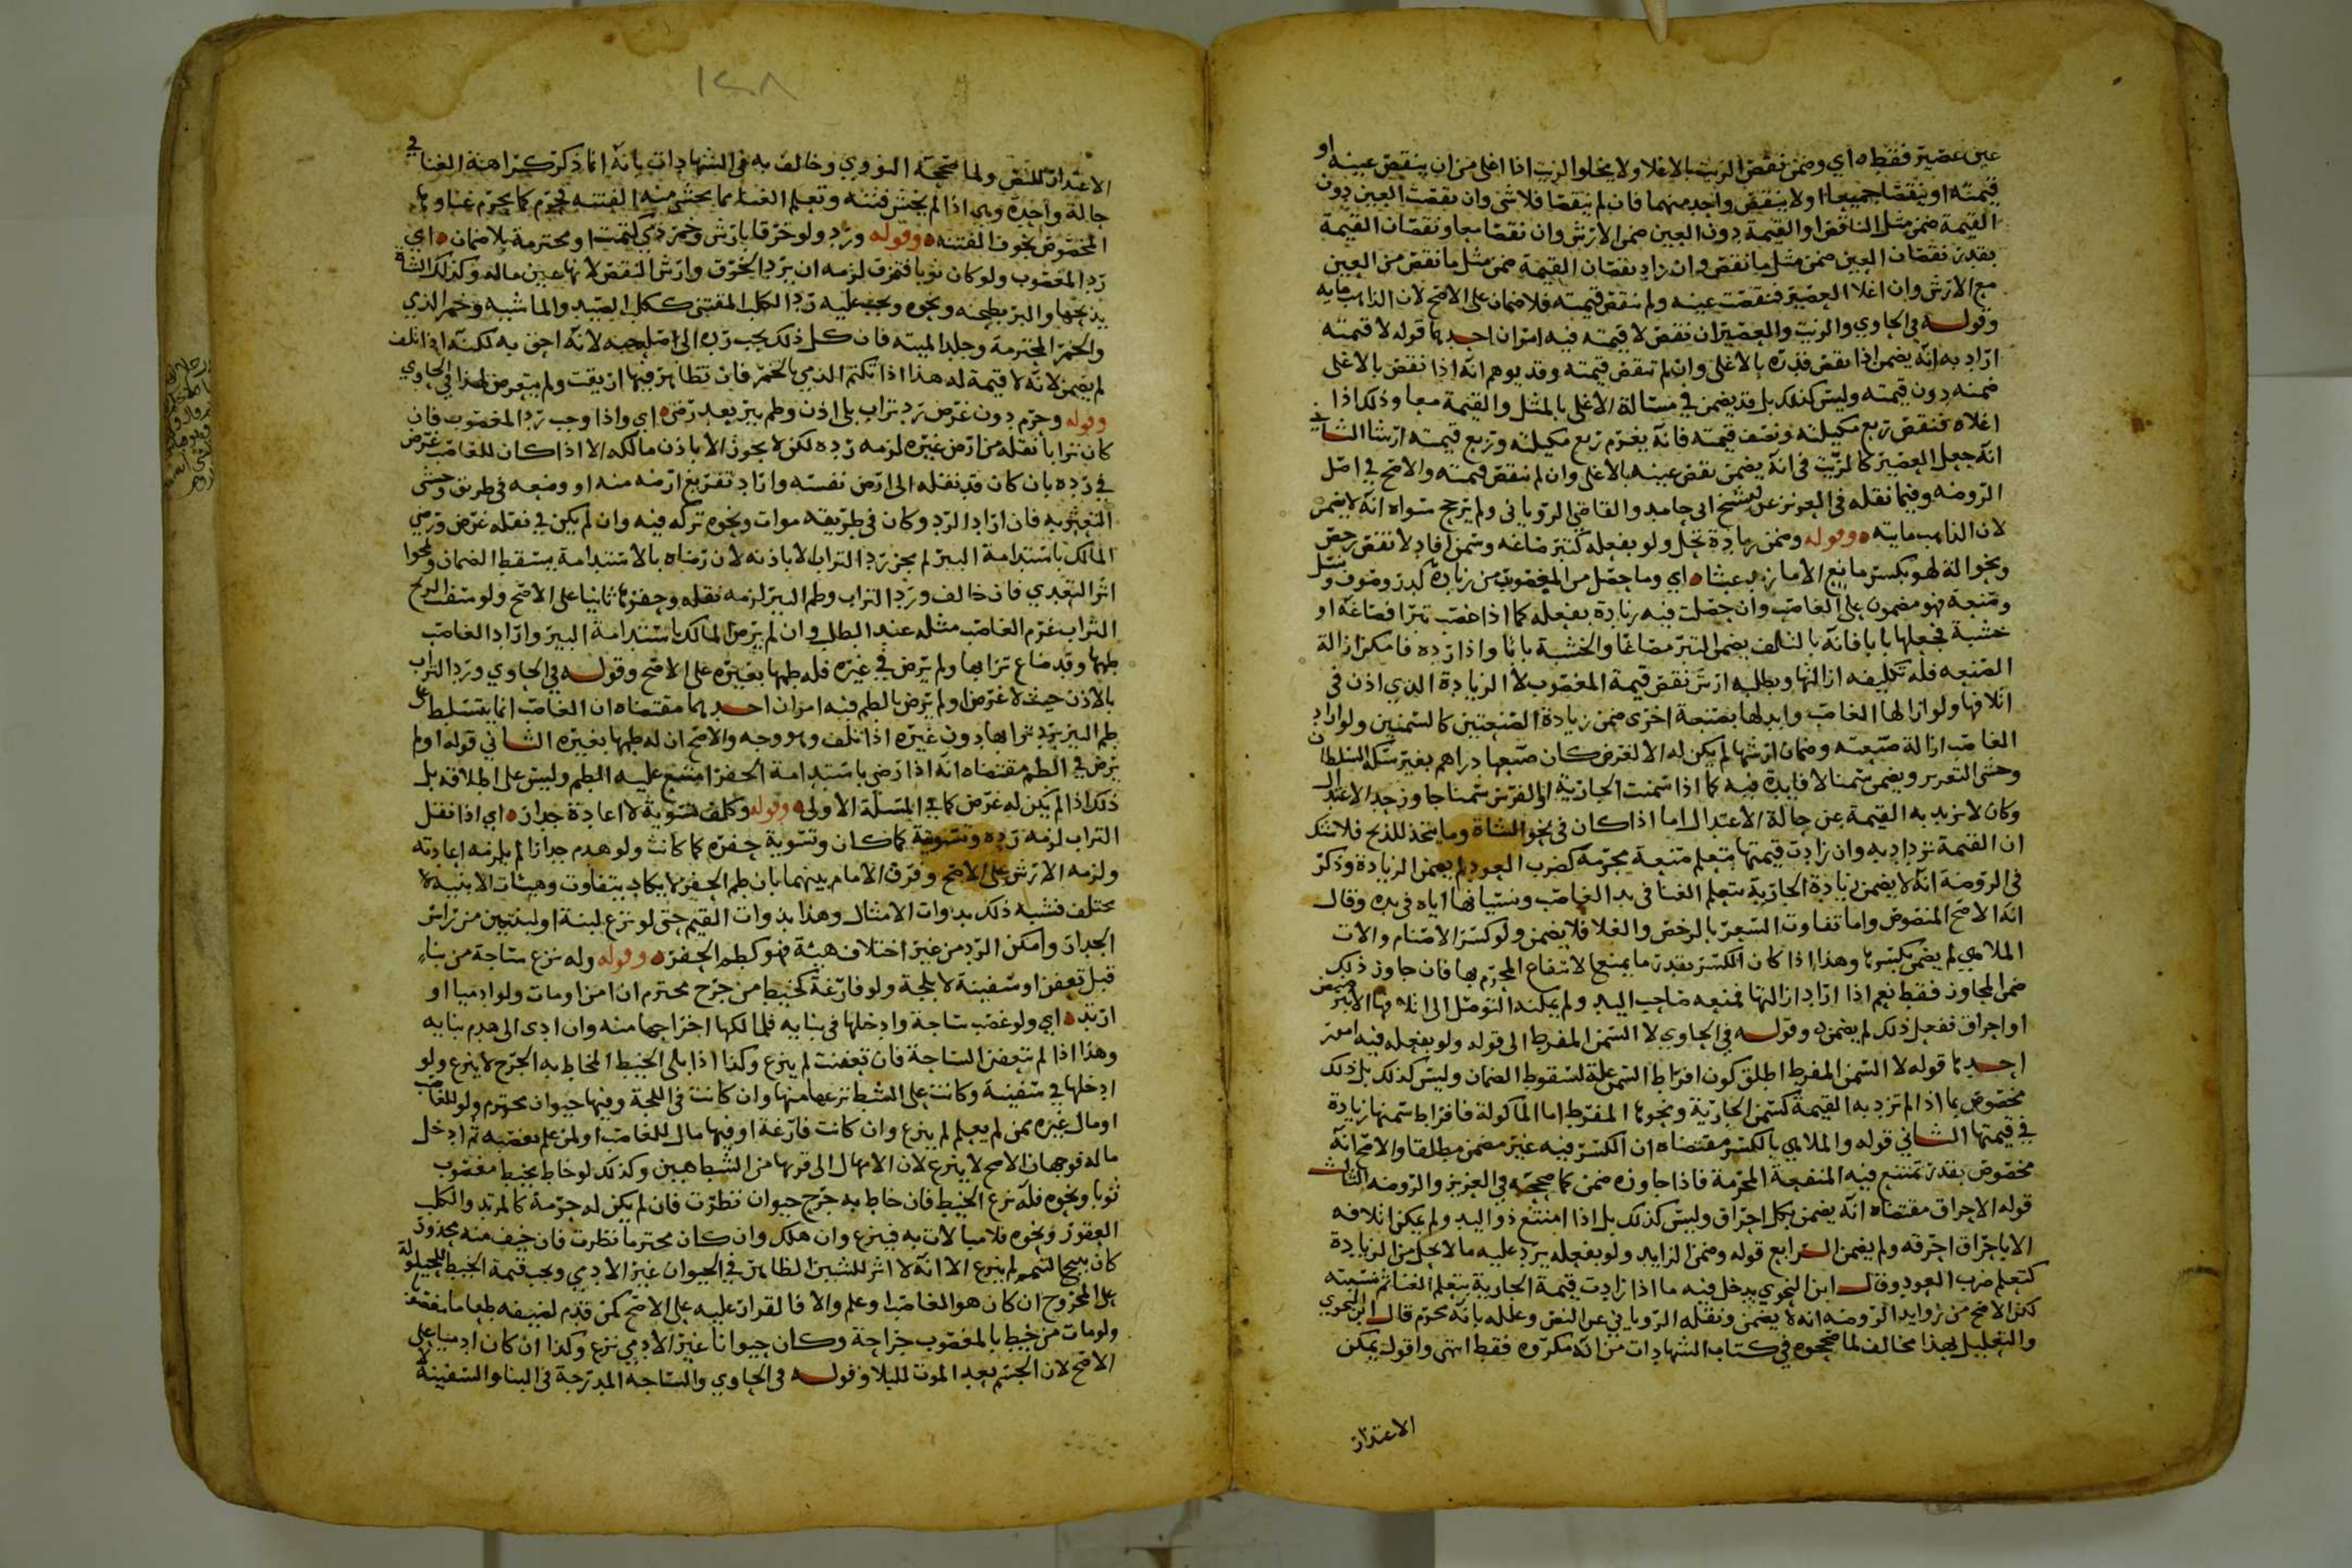 عين عصير فقط ه اي وضمن نقص الزيت بالاغلا ولا يخلوا الزيت اذا اغلي من ان ينقص عينه او
قيمته او ينقصا جميعا اولا ينقص واحد منهما فان لم ينقصا فلا شي وان نقصت العين دون
القيمة ضمن مثل الناقص او القيمة دون العين ضمن الارش وان نقصا معا ونقصان القيمة
بقدر نقصان العين ضمن مثل ما نقص وان زاد نقصان القيمة ضمن مثل ما نقص من العين
مع الارش وان اغلا العصير فنقصت عينه ولم تنقص قيمته فلا ضمان على الاصح لان الذاهب مايه
وقوله في الحاوي والزيت والعصير ان نقص لا قيمته فيه امران احدهما قوله لا قيمته
اراد به انه يضمن اذا نقص قدره بالاغلي وان لم تنقص قيمته وقد يوهم انه اذا نقص بالاغلى
ضمنه دون قيمته وليس كذلك بل قد يضمن في مسالة الاغلي بالمثل والقيمة معا وذلك اذا
اغلاه فنقص ربع مكيلته ونصف قيمته فانه يغرم ربع مكيلته وربع قيمته ارشا الثاني
انه جعل العصير كالزيت في انه يضمن نقص عينه بالاغلى وان لم تنقص قيمته والاصح في اصل
الروضه وفيما نقله في العزيز عن الشيخ ابي حامد والقاضي الروياني ولم يرجح سواه انه لا يضمن
لان الذاهب مايته ه وقوله وضمن زيادة تحل ولو بفعله كتبر صاغه وسمن افاد لا نقص رخص
ونحو الة لهو بكسر مانع الا ما زيد عبثا ه اي وما حصل من المغصوب من زيادة كدر وصوف ونسل
وصنعة فهو مضمون على الغاصب وان حصلت فيه زيادة بفعله كما اذا غصب تبرا فصاغه او
خشبة فجعلها بابا فانه بالتلف يضمن التبر مصاغا والخشبة بابا واذا رده فامكن ازالة
الصنعه فله تكليفه ازالتها ويطالبه ارش نقص قيمة المغصوب لا الزيادة الذي اذن في
اتلافها ولو ازالها الغاصب وابدلها بصنعة اخرى ضمن زيادة الصنعتين كالسمنين ولو اراد
الغاصب ازالة صنعته وضمان ارشها لم يكن له الا لغرض كان صنعها دراهم بغير سكة السلطان
وخشي التعزير ويضمن سمنا لا فايدة فيه كما اذا سمنت الجارية او الفرس سمنا جاوز حد الاعتدال
وكان لا يزيد به القيمة عن حالة الاعتدال اما اذا كان في نحو الشاة وما يتخذ للذبح فلا شك
ان القيمة تزداد به وان زادت قيمتها بتعلم صنعة محرمة كضرب العود لم يضمن الزيادة وذكر
في الروضة انه لا يضمن زيادة الجارية بتعلم الغنا في يد الغاصب ونسيانها اياه في يده وقال
انه الاصح المنصوص واما تفاوت السعر بالرخص والغلا فلا يضمن ولو كسر الاصنام والات
الملاهي لم يضمن بكسرها وهذا اذا كان الكسر بقدر ما يمنع الانتفاع المحرم بها فان جاوز ذلك
ضمن المجاوز فقط نعم اذا اراد ازالتها فمنعه صاحب اليد ولم يمكنه التوصل الى اتلافها الا برضض
او احراق ففعل ذلك لم يضمن وقوله في الحاوي لا السمن المفرط الى قوله ولو بفعله فيه امور
احدها قوله لا السمن المفرط اطلق كون افراط السمن علة لسقوط الضمان وليس كذلك بل ذلك
مخصوص بما اذا لم تزد به القيمة كسمن الجارية ونحوها المفرط اما الماكولة فافراط سمنها زيادة
في قيمتها الثاني قوله والملاهي بالكسر مقتضاه ان الكسر فيه غير مضمن مطلقا والاصح انه
مخصوص بقدر تمتنع فيه المنفعة المحرمة فاذا جاوزه ضمن كما صححه في العزيز والروضه الثالث
قوله الاحراق مقتضاه انه يضمن بكل احراق وليس كذلك بل اذا امتنع ذو اليد ولم يمكن اتلافه
الا باحراق احرقه ولم يضمن الرابع قوله وضمن الزايد ولو بفعله يرد عليه ما لا يحل من الزيادة
كتعلم ضرب العود وقال ابن النحوي يدخل فيه ما اذا زادت قيمة الجارية بتعلم الغنا ثم نسيته
لكن الاصح من زوايد الروضه انه لا يضمن ونقله الروياني عن النص وعلله بانه محرم قال ابن النحوي
والتعليل بهذا مخالف لما صححوه في كتاب الشهادات من انه مكروه فقط انتهى واقول يمكن
الاعتذار
١٤٨
الاعتذار للنص ولما صححه النووي وخالف به في الشهادات بانه انما ذكر كراهة الغنا في
حالة واحدة وهي اذا لم يخش فتنه وتعلم الغنا مما يخشى منه الفتنه فحرم كما يحرم غناوها
المخصوص بخوف الفتنه ه وقوله ورد ولو خرقا بارش وخمر ذمي كتمت او محترمة بلا ضمان ه اي
رد المغصوب ولو كان ثوبا فتمزق لزمه ان يرد الخرق وارش النقص لانها عين ماله وكذلك الشاة
يذبحها والبر يطحنه ونحوه ويجب عليه رد الكلب المقتنى ككلب الصيد والماشيه وخمر الذمي
والخمر المحترمة وجلد الميته فان كل ذلك يجب رده الى صاحبه لانه احق به لكنه اذا تلف
لم يضمن لانه لا قيمة له هذا اذا تكتم الذمي بالخمر فان تظاهر فيها اريقت ولم يتعرض لهذا في الحاوي
وقوله وحرم دون غرض رد تراب بلا اذن وطم بير بعد رضى ه اي واذا وجب رد المغصوب فان
كان ترابا نقله من ارض غيره لزمه رده لكن لا يجوز الا باذن مالكه الا اذا كان للغاصب غرض
في رده بان كان قد نقله الى ارض نفسه واراد تفريغ ارضه منه او وضعه في طريق وخشي
التعثر به فان اراد الرد وكان في طريقه موات ونحوه تركه فيه وان لم يكن في نقله غرض ورضي
المالك باستدامة البير لم يجز رد التراب الا باذنه لان رضاه بالاستدامة يسقط الضمان ويمحوا
اثر التعدي فان خالف ورد التراب وطم البير لزمه نقله وحفرها ثانيا على الاصح ولو سفت الريح
التراب غرم الغاصب مثله عند الطلب وان لم يرض المالك باستدامة البير واراد الغاصب
طمها وقد ضاع ترابها ولم يرض في غيره فله طمها بغيره على الاصح وقوله في الحاوي ورد التراب
بالاذن حيث لا غرض او لم يرض بالطم فيه امران احدهما مقتضاه ان الغاصب انما يتسلط على
طم البير برد ترابها دون غيره اذا تلف وهو وجه والاصح ان له طمها بغيره الثاني قوله او لم
يرض في الطم مقتضاه انه اذا رضي باستدامة الحفر امتنع عليه الطم وليس على اطلاقه بل
ذلك اذا لم يكن له غرض كما في المسلة الاولى ه وقوله وكلف تسوية لا اعادة جدار ه اي اذا نقل
التراب لزمه رده وتسويته كما كان وتسوية حفره كما كانت ولو هدم جدارا لم يلزمه اعادته
ولزمه الارش على الاصح وفرق الامام بينهما بان طم الحفر لا يكاد يتفاوت وهيئات الابنية
تختلف فشبه ذلك بذوات الامثال وهذا بذوات القيم حتى لو نزع لبنة او لبنتين من راس
الجدار وامكن الرد من غير اختلاف هيئة فهو كطم الحفر ه وقوله وله نزع ساجة من بناء
قبل تعفن او سفينة لا بلجة ولو فارغة كخيط من جرح محترم ان امن او مات ولو ادميا او
ارتد ه اي ولو غصب ساجة وادخلها في بنايه فلمالكها اخراجها منه وان ادى الى هدم بنايه
وهذا اذا لم تتعفن الساجة فان تعفنت لم ينزع وكذا اذا بلي الخيط المخاط به الجرح لا ينزع ولو
ادخلها في سفينة وكانت على الشط نزعها منها وان كانت في اللجة وفيها حيوان محترم ولو للغاصب
او مال غيره ممن لم يعلم لم ينزع وان كانت فارغة او فيها مال للغاصب او لمن علم بغصبه ثم ادخل
ماله فوجهان الاصح لا ينزع لان الامهال الى قربها من الشط هين وكذلك لو خاط بخيط مغصوب
ثوبا ونحوه فله نزع الخيط فان خاط به جرح حيوان نظرت فان لم يكن له حرمة كالمرتد والكلب
العقور ونحوه فلا مبالات به فينزع وان هلك وان كان محترما نظرت فان خيف منه محذور
كان يبيح التيمم لم ينزع الا انه لا اثر للشين الظاهر في الحيوان غير الادمي ويجب قيمة الخيط للحيلولة
على المجروح ان كان هو الغاصب او علم والا فالقرار عليه على الاصح كمن قدم لضيفه طعاما مغصوبا
ولو مات من خيط بالمغصوب جراحة وكان حيوانا غير الادمي نزع وكذا ان كان ادميا على
الاصح لان الجسم بعد الموت للبلا وقوله في الحاوي والساجة المدرجة في البنا والسفينة لا